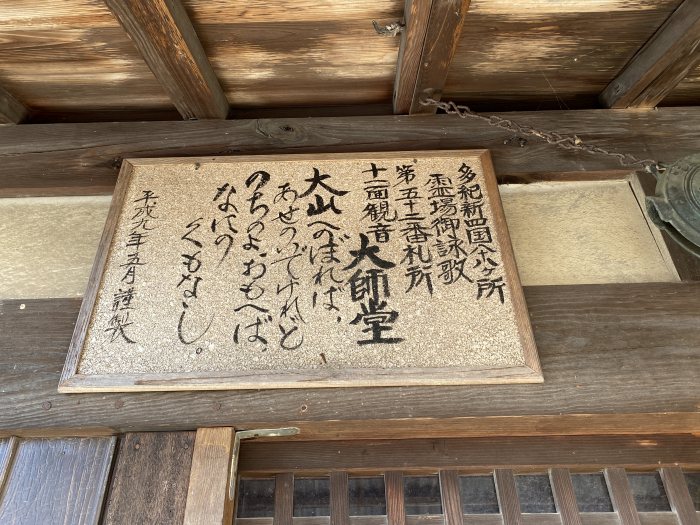 多紀新四国八十八ヶ所
霊場御詠歌
第五十二番札所
十一面観音
大師堂
大山へのぼれば、
あせのいでけれど
のちのよ、おもへば、
なにの
くもなし。
平成九年五月謹製